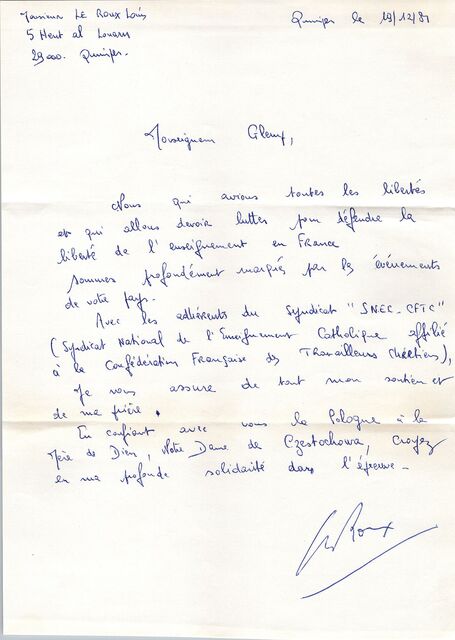 Monsieur LE Roux Louis
5 Hent al Louarn
29000. Quimper.
Quimper le 19/12/81
Monseigneur Glemp,
Nous qui avions toutes les libertés
et qui allons devoir lutter pour défendre la
liberté de l'enseignement en France
sommes profondément marqués par les événements
de votre pays.
Avec les adhérents du Syndicat "SNEC-CFTC"
(Syndicat National de l'Enseignement Catholique affilié
à la Confédération Française des Travailleurs Chrétiens),
je vous assure de tout mon soutien et
de ma prière.
En confiant avec vous la Pologne à la
Mère de Dieu, Notre Dame de Czestochowa, croyez
en ma profonde solidarité dans l'épreuve -
Le Roux